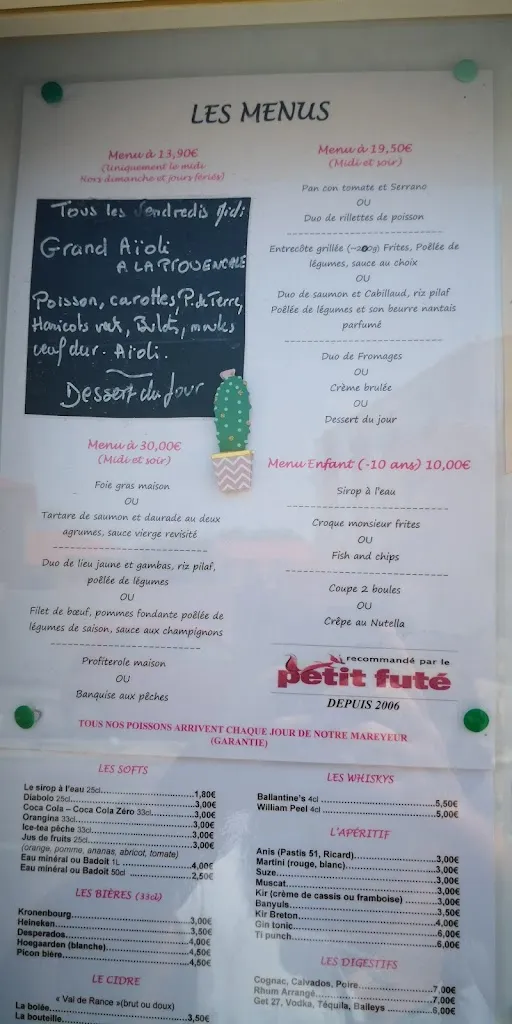 LES MENUS
Menu à 13,90€
(Uniquement le midi
Hors dimanche et jours fériés)
Tous les Vendredis Midi:
Grand Aïoli
A LA PROVENCALE
Poisson, carottes, P. de Terre,
Haricots verts, Bulots, moules
oeuf dur. Aïoli.
Dessert du Jour
Menu à 30,00€
(Midi et soir)
Foie gras maison
OU
Tartare de saumon et daurade au deux
agrumes, sauce vierge revisité
Duo de lieu jaune et gambas, riz pilaf,
poêlée de légumes
OU
Filet de bœuf, pommes fondante poêlée de
légumes de saison, sauce aux champignons
Profiterole maison
OU
Banquise aux pêches
Menu à 19,50€
(Midi et soir)
Pan con tomate et Serrano
OU
Duo de rillettes de poisson
Entrecôte grillée (~200g) Frites, Poêlée de
légumes, sauce au choix
OU
Duo de saumon et Cabillaud, riz pilaf
Poêlée de légumes et son beurre nantais
parfumé
Duo de Fromages
OU
Crème brulée
OU
Dessert du jour
Menu Enfant (-10 ans) 10,00€
Sirop à l'eau
Croque monsieur frites
OU
Fish and chips
Coupe 2 boules
OU
Crêpe au Nutella
recommandé par le
petit futé
DEPUIS 2006
TOUS NOS POISSONS ARRIVENT CHAQUE JOUR DE NOTRE MAREYEUR
(GARANTIE)
LES SOFTS
Le sirop à l'eau 25cl 1,80€
Diabolo 25cl 3,00€
Coca Cola – Coca Cola Zéro 33cl 3,00€
Orangina 33cl 3,00€
Ice-tea pêche 33cl 3,00€
Jus de fruits 25cl 3,00€
(orange, pomme, ananas, abricot, tomate)
Eau minéral ou Badoit 1L 4,00€
Eau minéral ou Badoit 50cl 2,50€
LES BIÈRES (33cl)
Kronenbourg 3,00€
Heineken 3,50€
Desperados 4,00€
Hoegaarden (blanche) 4,50€
Picon bière 4,50€
LE CIDRE
« Val de Rance »(brut ou doux)
La bolée 3,50€
La bouteille
LES WHISKYS
Ballantine's 4cl 5,50€
William Peel 4cl 5,00€
L'APÉRITIF
Anis (Pastis 51, Ricard) 3,00€
Martini (rouge, blanc) 3,00€
Suze 3,00€
Muscat 3,00€
Kir (crème de cassis ou framboise) 3,00€
Banyuls 3,50€
Kir Breton 4,00€
Gin tonic 6,00€
Ti punch 6,00€
LES DIGESTIFS
Cognac, Calvados, Poire 7,00€
Rhum Arrangé 7,00€
Get 27, Vodka, Téquila, Baileys 6,00€